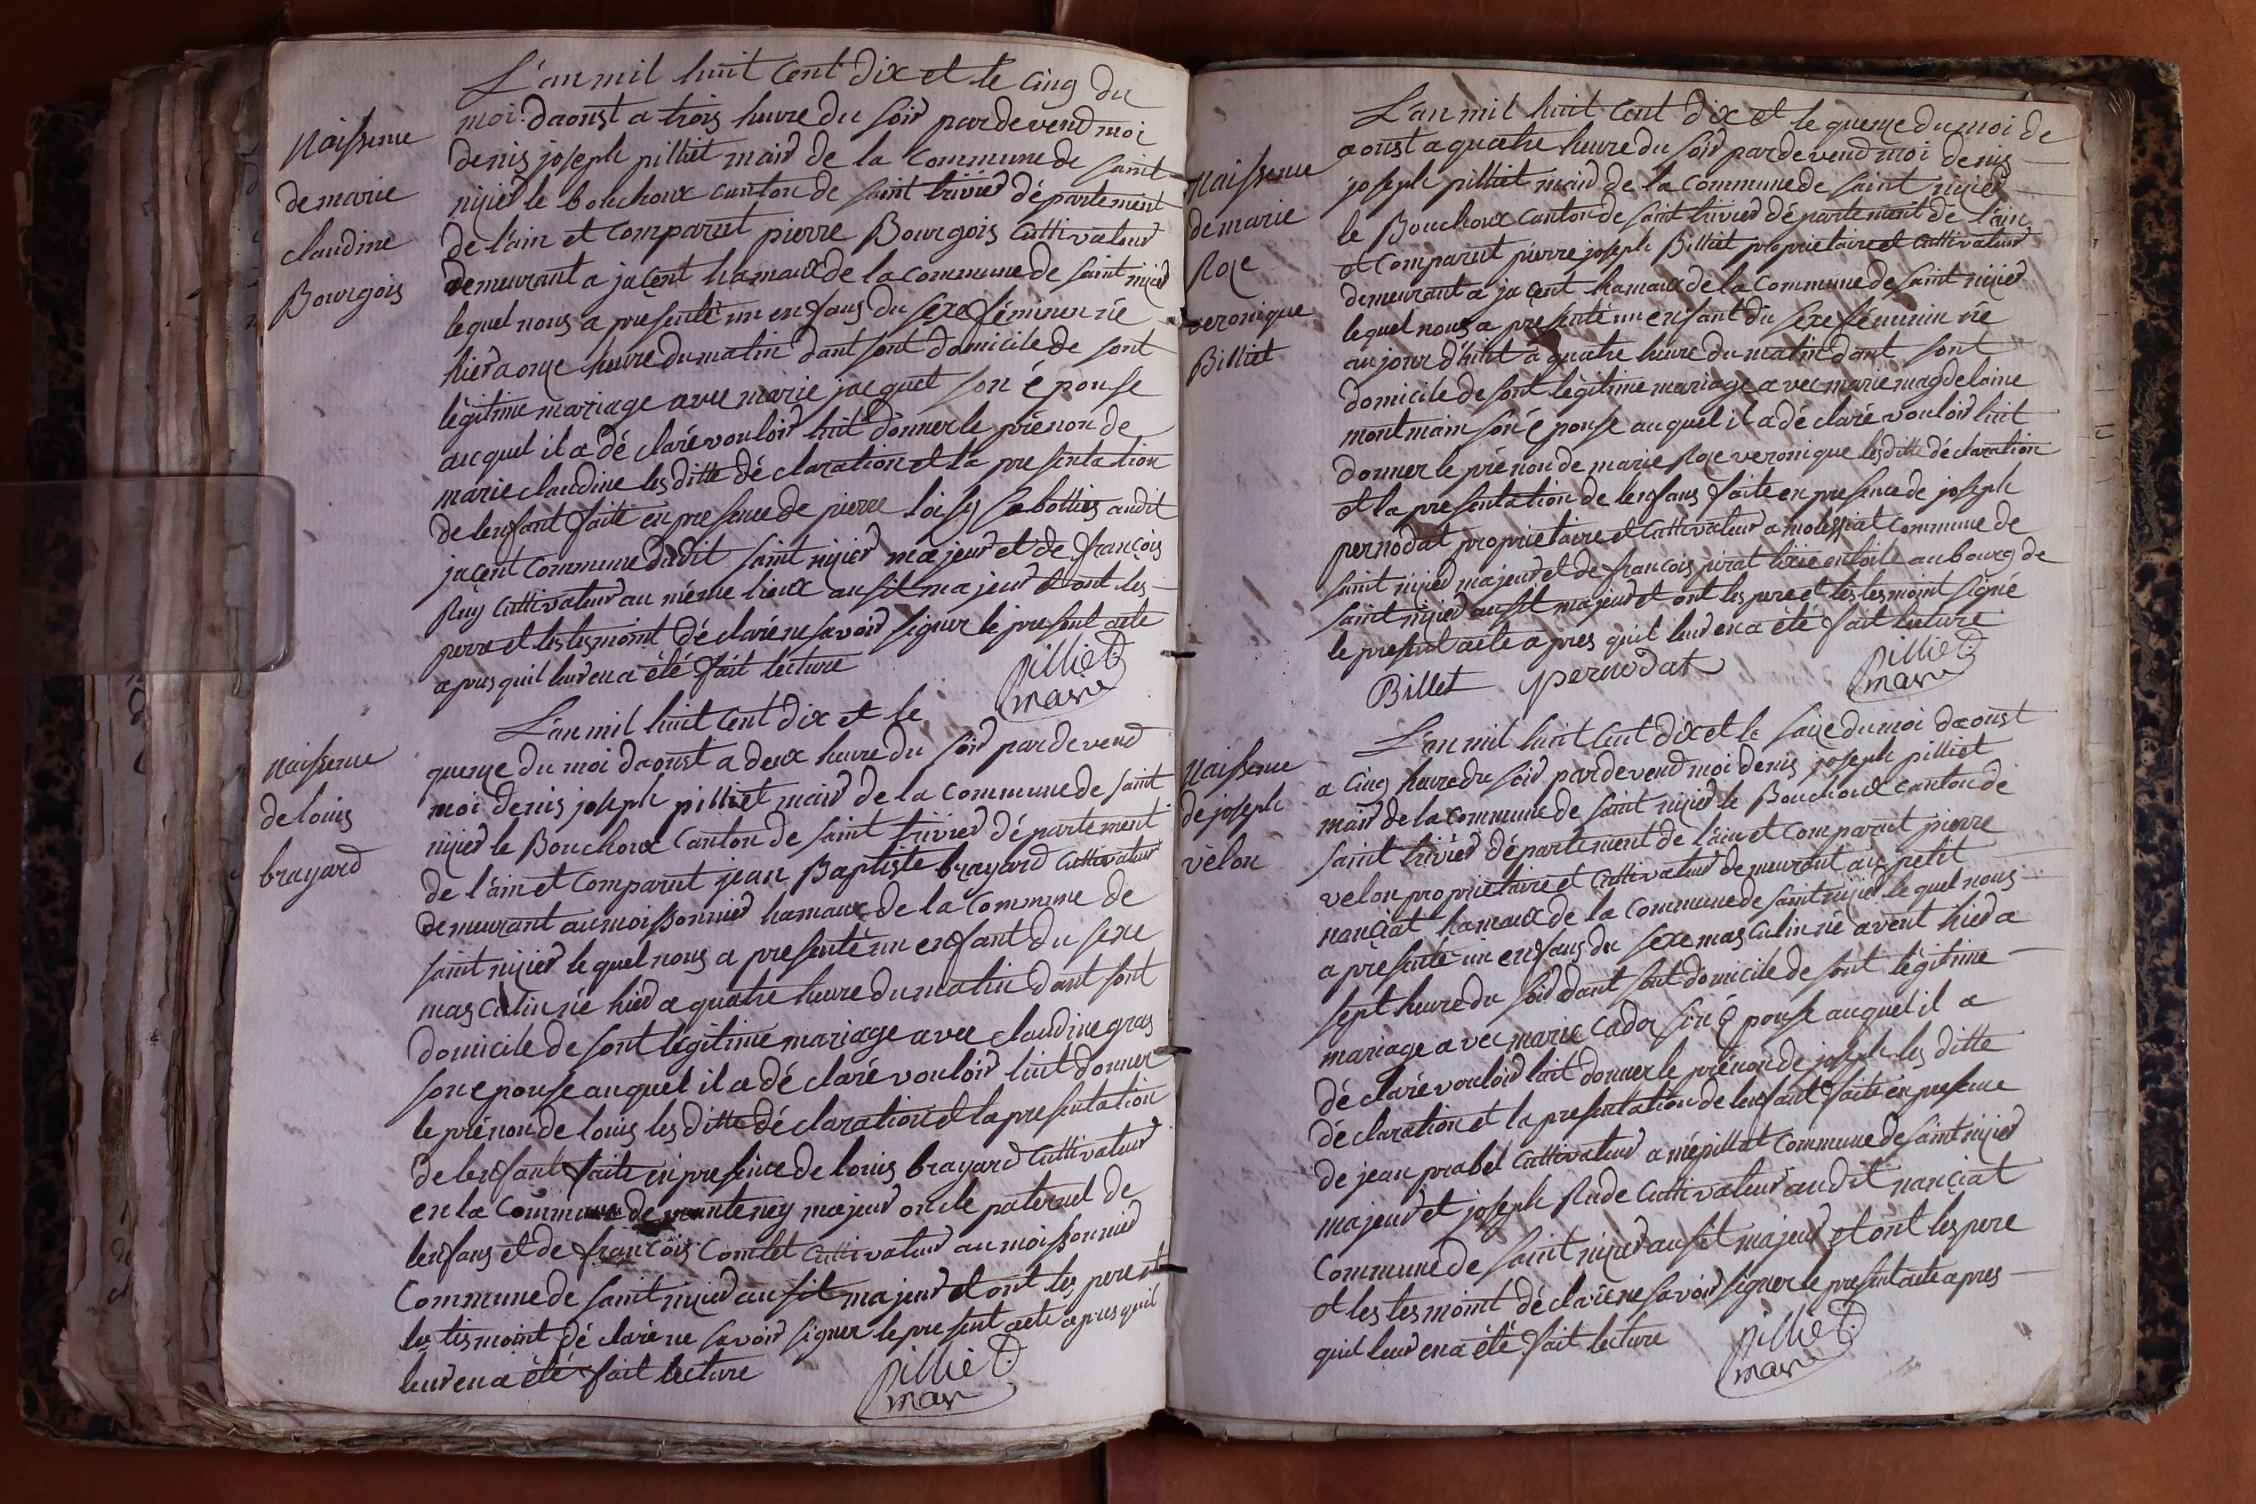 L'an mil huit cent dix et le cinq du
Naissenue
de marie
claudine
Bourgois
moi daoust a trois heure du soir pardevend moi
denis joseph pilliet mair de la commune de saint
nizier le bouchoux canton de saint trivier département
de l'ain et comparut pierre Bourgois Cultivateur
demeurant a jaçent hamaux de la commune de saint nizier
lequel nous a presenté un enfans du sexe féminen né
hier a onze heure du matin dant sont domicile de sont
légitime mariage avec marie jacquet son épouse
aucquel il a déclaré vouloir luit donner le prénon de
marie claudine les ditte déclaration et la presentation
de lenfant faite en presence de pierre loisy sabottier audit
jaçent commune dudit saint nizier majeur et de françois
Ruy Cultivateur au même lieux ausit majeur et ont les
perre et les tesmoint déclaré ne savoir signer le present acte
apres quil leur en a été fait lecture
pilliet
mair
naissenue
de louis
brayard
L'an mil huit cent dix et le
quenze du moi daoust a deux heure du soir pardevend
moi denis joseph pilliet mair de la commune de saint
nizier le Bouchoux Canton de saint trivier département
de l'ain et comparut jean Baptiste brayard Cultivateur
demeurant au moissonnier hamaux de la Commune de
saint nizier lequel nous a presenté un enfant du sexe
masculin né hier a quatre heure du matin dant sont
domicile de sont légitime mariage avec claudine gras
son epouse auquel il a déclaré vouloir luit donner
le prénon de louis les ditte déclaration et la presentation
de lenfant faite en presence de louis brayard Cultivateur
en la Commune de manteney majeur oncle paternel de
lenfans et de françois Comtet Cultivateur au moissonnier
Commune de saint nizier ausit majeur et ont les pere et
les tesmoint déclaré ne savoir signer le present acte apres quil
leur en a été fait lecture
pilliet
mair
Naissenue
de marie
Roze
veronique
Billiet
L'an mil huit cent dix et le quenze du moi de
aoust a quatre heure du soir pardevend moi denis
joseph pilliet mair de la commune de saint nizier
le Bouchoux canton de saint trivier département de l'ain
et comparut pierre joseph Billiet proprietaire et Cultivateur
demeurant a jaçent hamaux de la commune de saint nizier
lequel nous a presenté un enfant du sexe féminin né
aujourd'huit a quatre heure du matin dant sont
domicile de sont légitime mariage avec marie magdelaine
montmain son épouse auquel il a déclaré vouloir luit
donner le prénon de marie Roze veronique les ditte déclaration
et la presentation de lenfans faite en presence de joseph
pernodat proprietaire et Cultivateur a molezziat commune de
saint nizier majeur et de françois pirat tixie en toile au bourg de
saint nizier ausit majeur et ont les pere et les tesmoint signé
le present acte apres quil leur en a été fait lecture
Billet pernodat pilliet
mair
Naissenue
de joseph
velon
L'an mil huit cent dix et le saize du moi daoust
a cinq heure du soir pardevend moi denis joseph pilliet
mair de la commune de saint nizier le Bouchoux canton de
saint trivier département de l'ain et comparut pierre
velon proprietaire et Cultivateur demeurant au petit
nançiat hamaux de la commune de saint nizier lequel nous
a presenté un enfans du sexe masculin né avent hier a
sept heure du soir dant sont domicile de sont légitime
mariage avec marie Cadoz son épouse auquel il a
déclaré vouloir luit donner le prénon de joseph les ditte
déclaration et la presentation de lenfant faite en presence
de jean prabel Cultivateur a mépillat commune de saint nizier
majeur et joseph Rude Cultivateur audit nançiat
commune de saint nizier ausit majeur et ont les pere
et les tesmoint déclaré ne savoir signer le present acte apres
quil leur en a été fait lecture
pilliet
mair